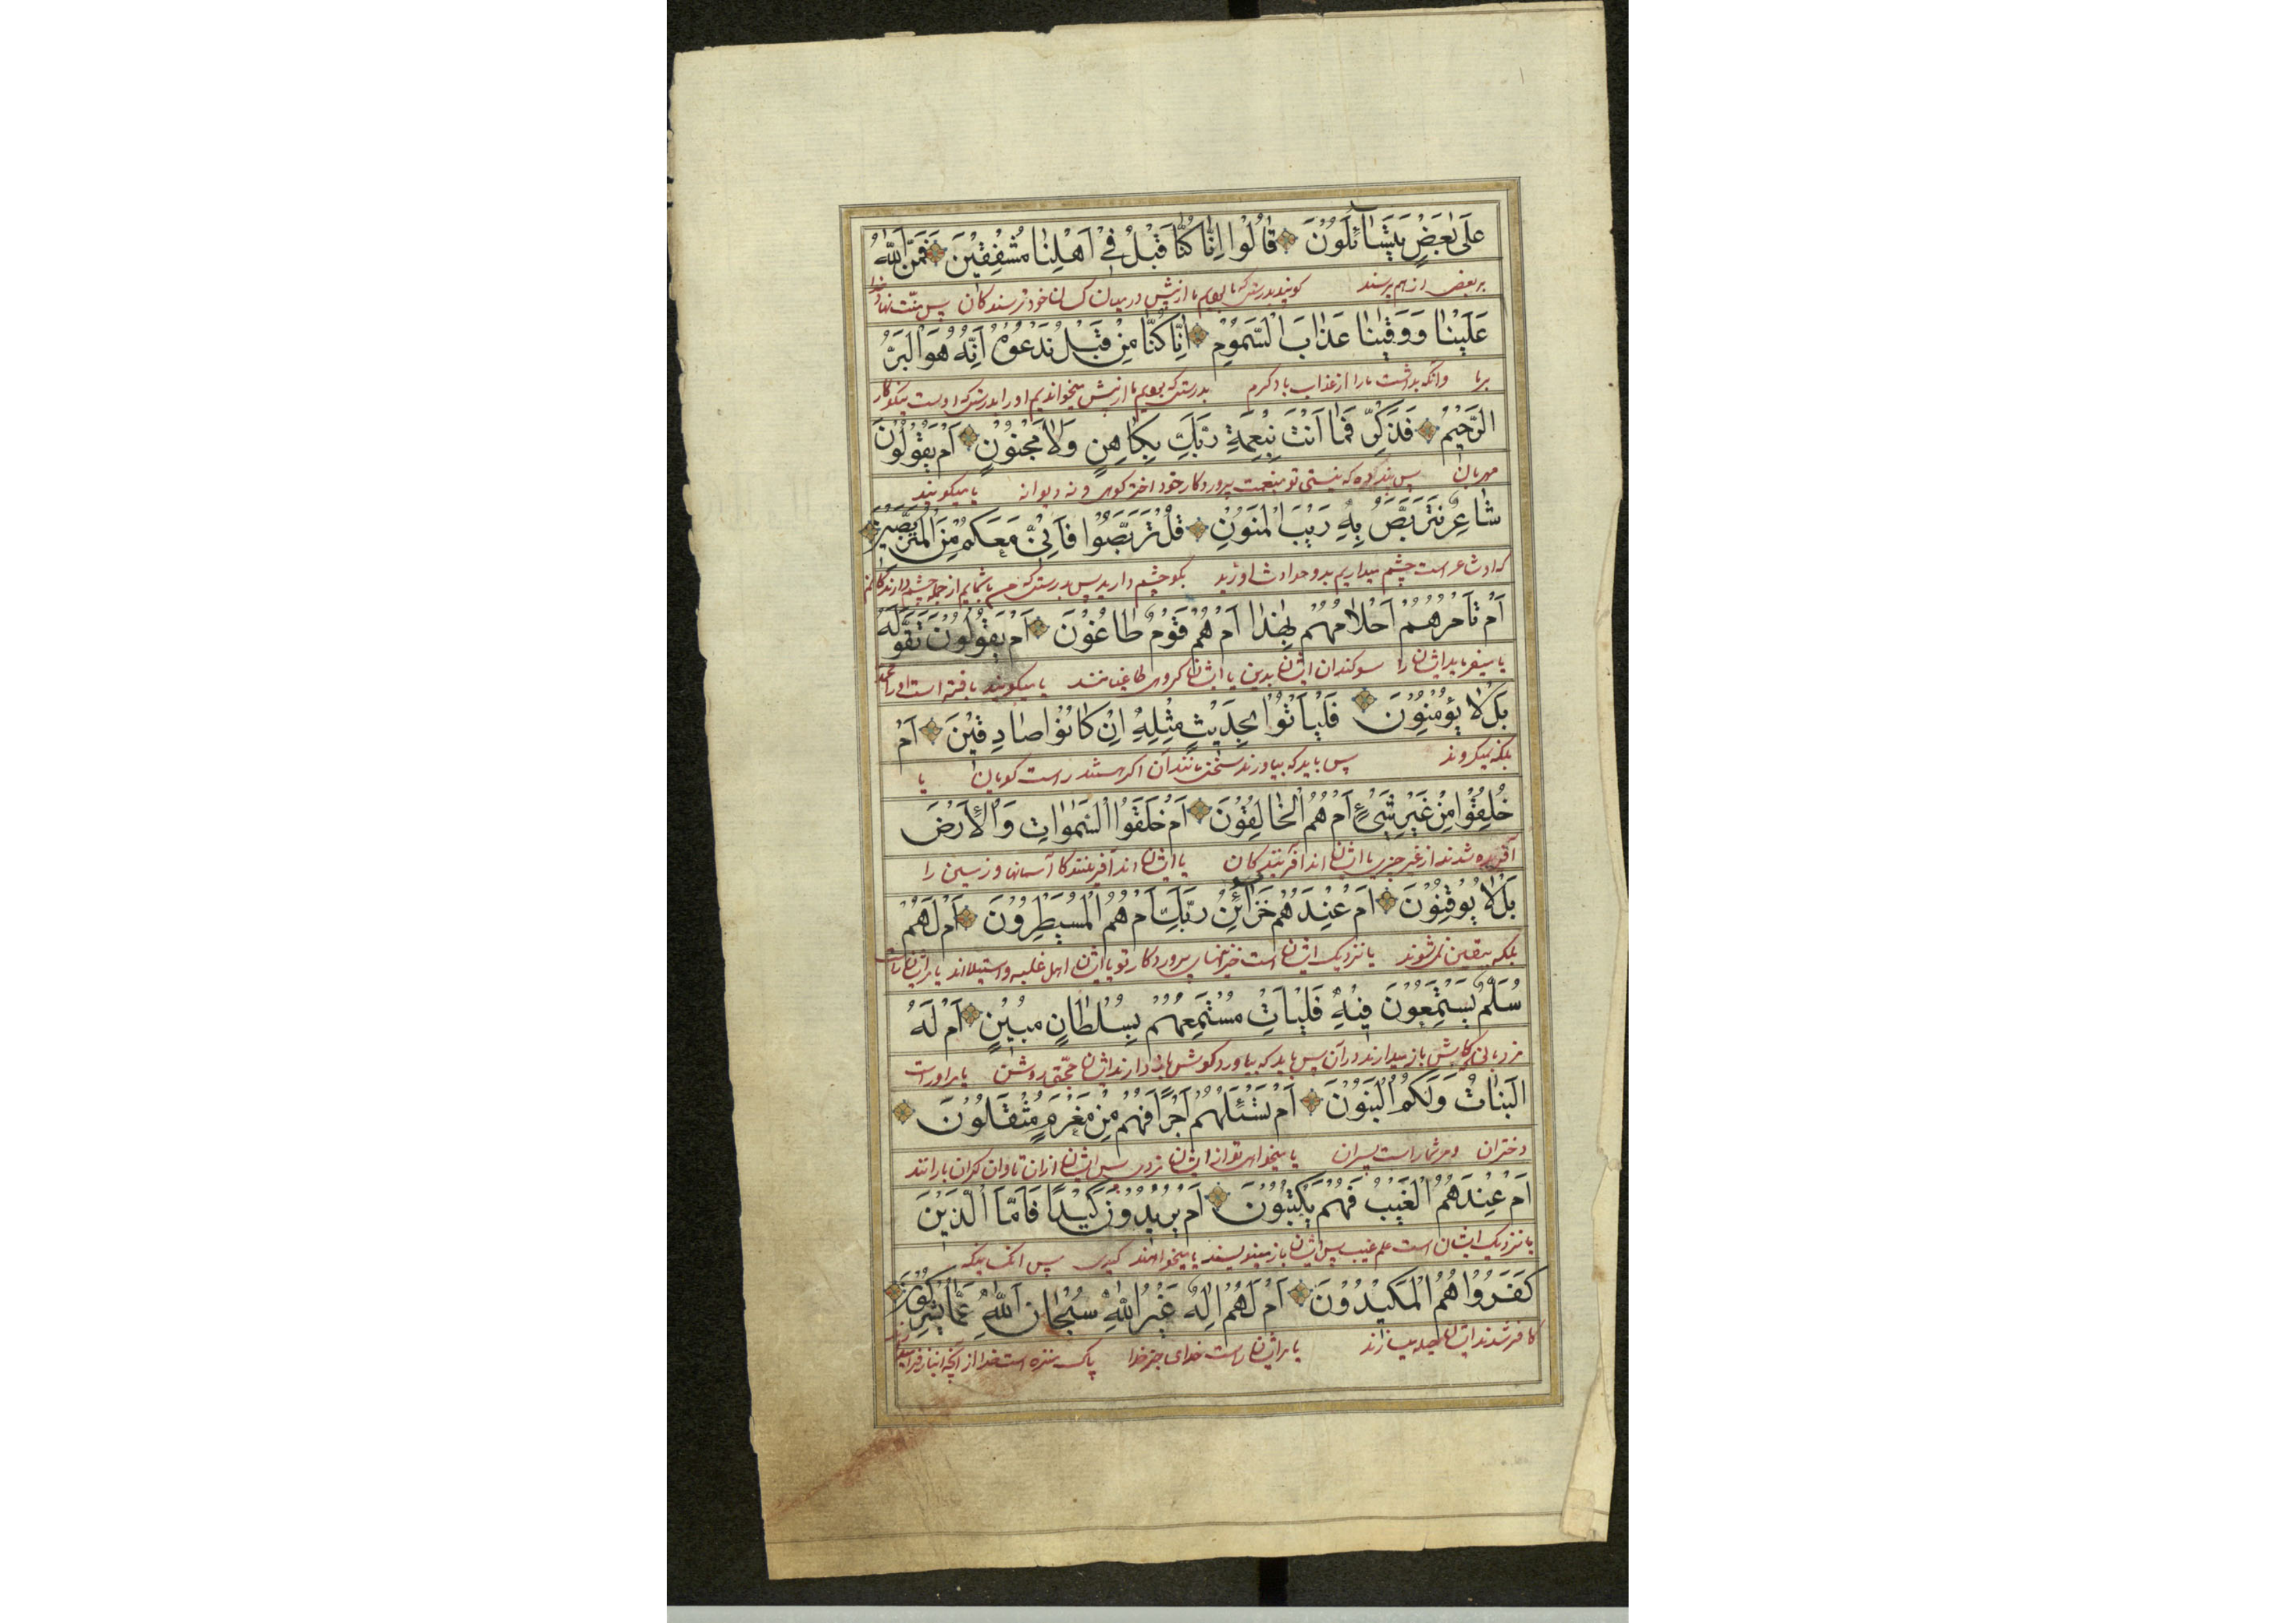 عَلَىٰ بَعْضٍ يَتَسَاۤئَلُوْنَ قَالُوْا اِنَّا كُنَّا قَبْلُ فِيْ اَهْلِنَا مُشْفِقِيْنَ فَمَنَّ اللّٰهُ
بر بعضی از هم پرسند کویند بدرستیکه ما بودیم ما ازپیش در میان کسان خود ترسندکان پس منّت نهاد خدا
عَلَيْنَا وَوَقٰىنَا عَذَابَ السَّمُوْمِ اِنَّا كُنَّا مِنْ قَبْلُ نَدْعُوْهُ اِنَّهُ هُوَ الْبَرُّ
برما وانکه بداشت مارا ازعذاب باد کرم بدرستیکه بودیم ما ازپیش میخواندیم اورا بدرستیکه اوست نیکوکار
الرَّحِيْمُ فَذَكِّرْ فَمَا اَنْتَ بِنِعْمَةِ رَبِّكَ بِكَاهِنٍ وَلَا مَجْنُوْنٍ اَمْ يَقُوْلُوْنَ
مهربان پس پند ده که نیستی تو بنعمت پروردکار خود اخترکوی و نه دیوانه یا میکویند
شَاعِرٌ نَتَرَبَّصُ بِهِ رَيْبَ الْمَنُوْنِ قُلْ تَرَبَّصُوْا فَاِنِّيْ مَعَكُمْ مِنَ الْمُتَرَبِّصِيْنَ
که او شاعر است چشم میداریم بدو حوادث بکو چشم دارید پس بدرستیکه من باشمایم از جمله چشم دارندکانم
اَمْ تَأْمُرُهُمْ اَحْلَامُهُمْ بِهٰذَا اَمْ هُمْ قَوْمٌ طَاغُوْنَ اَمْ يَقُوْلُوْنَ تَقَوَّلَهُ
یا میفرماید ایشان را ایشان بدین یا ایشان کروهی طاغیانند یا میکویند بافته است اورا محمد
بَلْ لَا يُؤْمِنُوْنَ فَلْيَأْتُوْا بِحَدِيْثٍ مِثْلِهِ اِنْ كَانُوْا صَادِقِيْنَ اَمْ
بلکه نمیکروند پس باید که بیاورند سخنی مانند آن اکر هستند راست کویان یا
خُلِقُوْا مِنْ غَيْرِ شَيْءٍ اَمْ هُمُ الْخَالِقُوْنَ اَمْ خَلَقُوا السَّمٰوَاتِ وَالْاَرْضَ
آفریده شدند از غیر چیزی یا ایشان اند آفرینندکان یا ایشان اند آفرینندکان آسمانها و زمین را
بَلْ لَا يُوْقِنُوْنَ اَمْ عِنْدَهُمْ خَزَاۤئِنُ رَبِّكَ اَمْ هُمُ الْمُسَيْطِرُوْنَ اَمْ لَهُمْ
بلکه بیقین نمی‌شوند یا نزدیک ایشان است خزینهای پروردکار تو یا ایشان اهل غلبه و استیلااند یا برایشان است
سُلَّمٌ يَسْتَمِعُوْنَ فِيْهِ فَلْيَأْتِ مُسْتَمِعُهُمْ بِسُلْطَانٍ مُبِيْنٍ اَمْ لَهُ
نردبانی که کوش باز میدارند در آن پس باید که بیاورد کوش دارند ایشان حجّتی روشن یا براوراست
الْبَنَاتُ وَلَكُمُ الْبَنُوْنَ اَمْ تَسْئَلُهُمْ اَجْرًا فَهُمْ مِنْ مَغْرَمٍ مُثْقَلُوْنَ
دختران و مر شماراست پسران یا میخواهی تو از ایشان مزدی پس ایشان ازان تاوان کران بارانند
اَمْ عِنْدَهُمُ الْغَيْبُ فَهُمْ يَكْتُبُوْنَ اَمْ يُرِيْدُوْنَ كَيْدًا فَاَمَّا الَّذِيْنَ
یا نزدیک ایشان است علم غیب پس ایشان باز مینویسند یا میخواهند کیدی پس آنکسانیکه
كَفَرُوْا هُمُ الْمَكِيْدُوْنَ اَمْ لَهُمْ اِلٰهٌ غَيْرُ اللّٰهِ سُبْحَانَ اللّٰهِ عَمَّا يُشْرِكُوْنَ
کافر شدند ایشان یا برایشان راست خدای جز خدا پاک منزه است خدا از آنچه انباز فرا